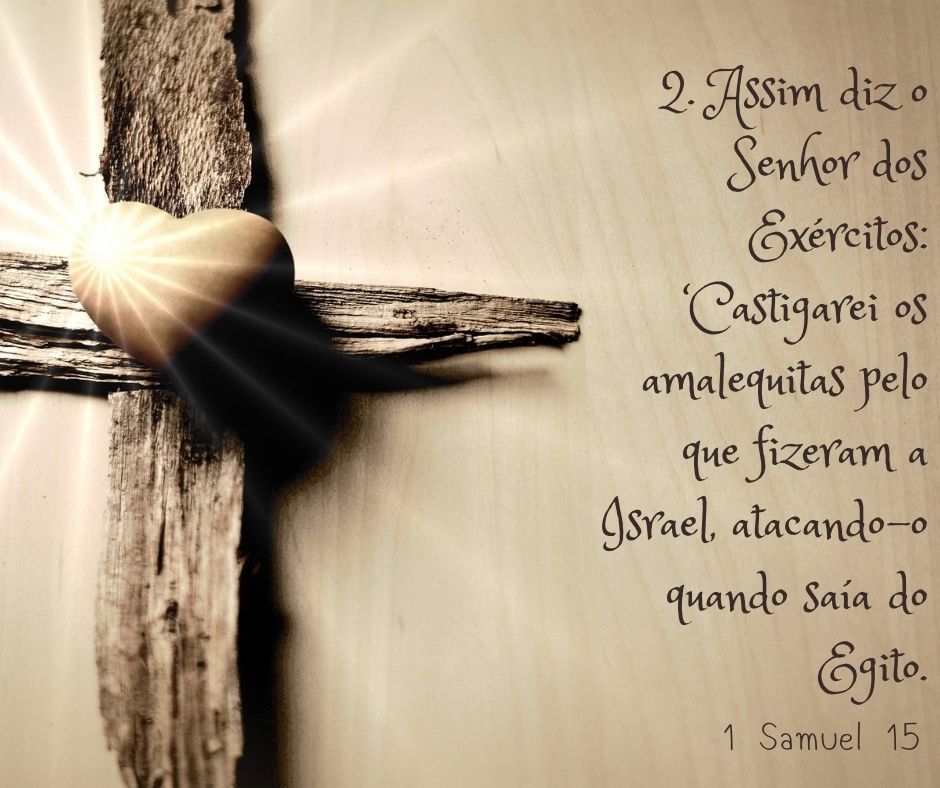 2. Assim diz o
Senhor dos
Exércitos:
‘Castigarei os
amalequitas pelo
que fizeram a
Israel, atacando-o
quando saía do
Egito.
1 Samuel 15